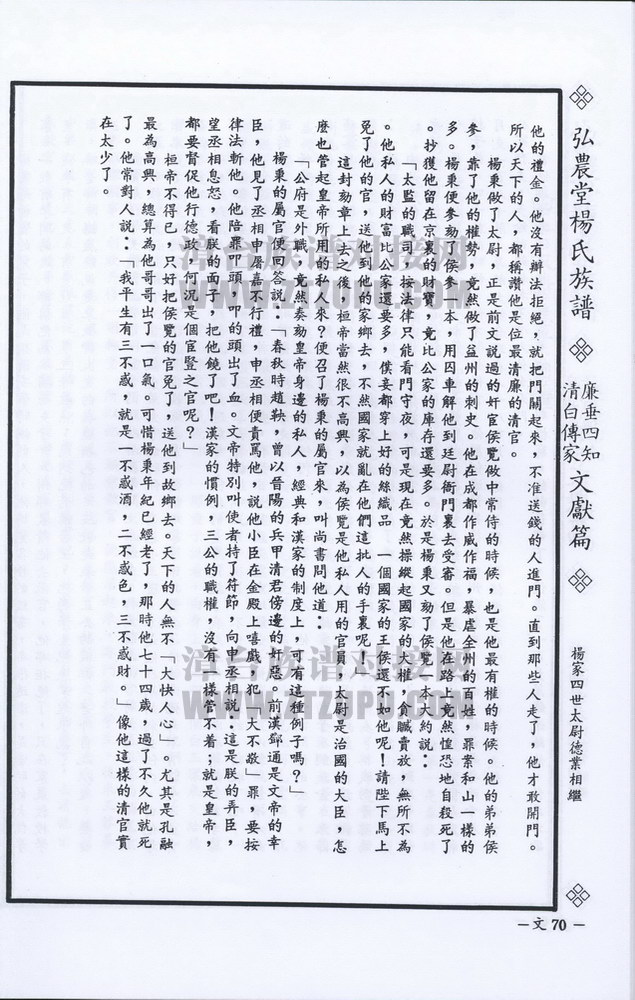 弘農堂楊氏族譜
廉垂四知
清白傳家
文獻篇
楊家四世太尉德業相繼
他的禮金。他沒有辦法拒絕，就把門關起來，不准送錢的人進門。直到那些人走了，他才敢開門。
所以天下的人，都稱讚他是位最清廉的清官。
楊秉做了太尉，正是前文說過的奸宦侯覽做中常侍的時候，也是他最有權的時候。他的弟弟侯
參，靠了他的權勢，竟然做了益州的刺史。他在成都作威作福，暴虐全州的百姓，罪案和山一樣的
多。楊秉便參劾了侯參一本，用囚車解他到廷尉衙門裏去受審。但是他在路上竟然惶恐地自殺死了
。抄獲他留在京裏的財寶，竟比公家的庫存還要多。於是楊秉又劾了侯覽一本大約說：
「太監的職司，按法律只能看門守夜，可是現在竟然操縱起國家的大權，貪贓賣放，無所不為
。他私人的財富比公家還要多，僕妾都穿上好的絲織品，一個國家的王侯還不如他呢！請陛下馬上
免了他的官，送他到他的家鄉去，不然國家就亂在他們這批人的手裏呢」
這封劾章上去之後，桓帝當然很不高興，以為侯覽是他私人用的官員，太尉是治國的大臣，怎
麼也管起皇帝所用的私人來？便召了楊秉的屬官來，叫尚書問他道：
「公府是外職，竟然奏劾皇帝身邊的私人，經典和漢家的制度上，可有這種例子嗎？」
楊秉的屬官便回答說：「春秋時趙鞅，曾以晉陽的兵甲清君傍邊的奸惡。前漢鄧通是文帝的幸
臣，他見了丞相申屠嘉不行禮，申丞相便責罵他，說他小臣在金殿上嘻戲，犯「大不敬」罪，要按
律法斬他。他陪罪叩頭，叩的頭出了血。文帝特別叫使者持了符節，向申丞相說：這是朕的弄臣，
望丞相息怒，看朕的面子，把他饒了吧！漢家的慣例，三公的職權，沒有一樣管不着；就是皇帝，
都要督促他行德政，何況是個宦豎之官呢？」
桓帝不得已，只好把侯覽的官免了，送他到故鄉去。天下的人無不「大快人心」。尤其是孔融
最為高興，總算為他哥哥出了一口氣。可惜楊秉年紀已經老了，那時他七十四歲，過了不久他就死
了。他常對人說：「我平生有三不惑，就是一不惑酒，二不惑色，三不惑財。」像他這樣的清官實
在太少了。
－文 70－
漳台族谱对接网
WWW.ZTZUPU.COM
漳台族谱对接网
WWW.ZTZUPU.COM